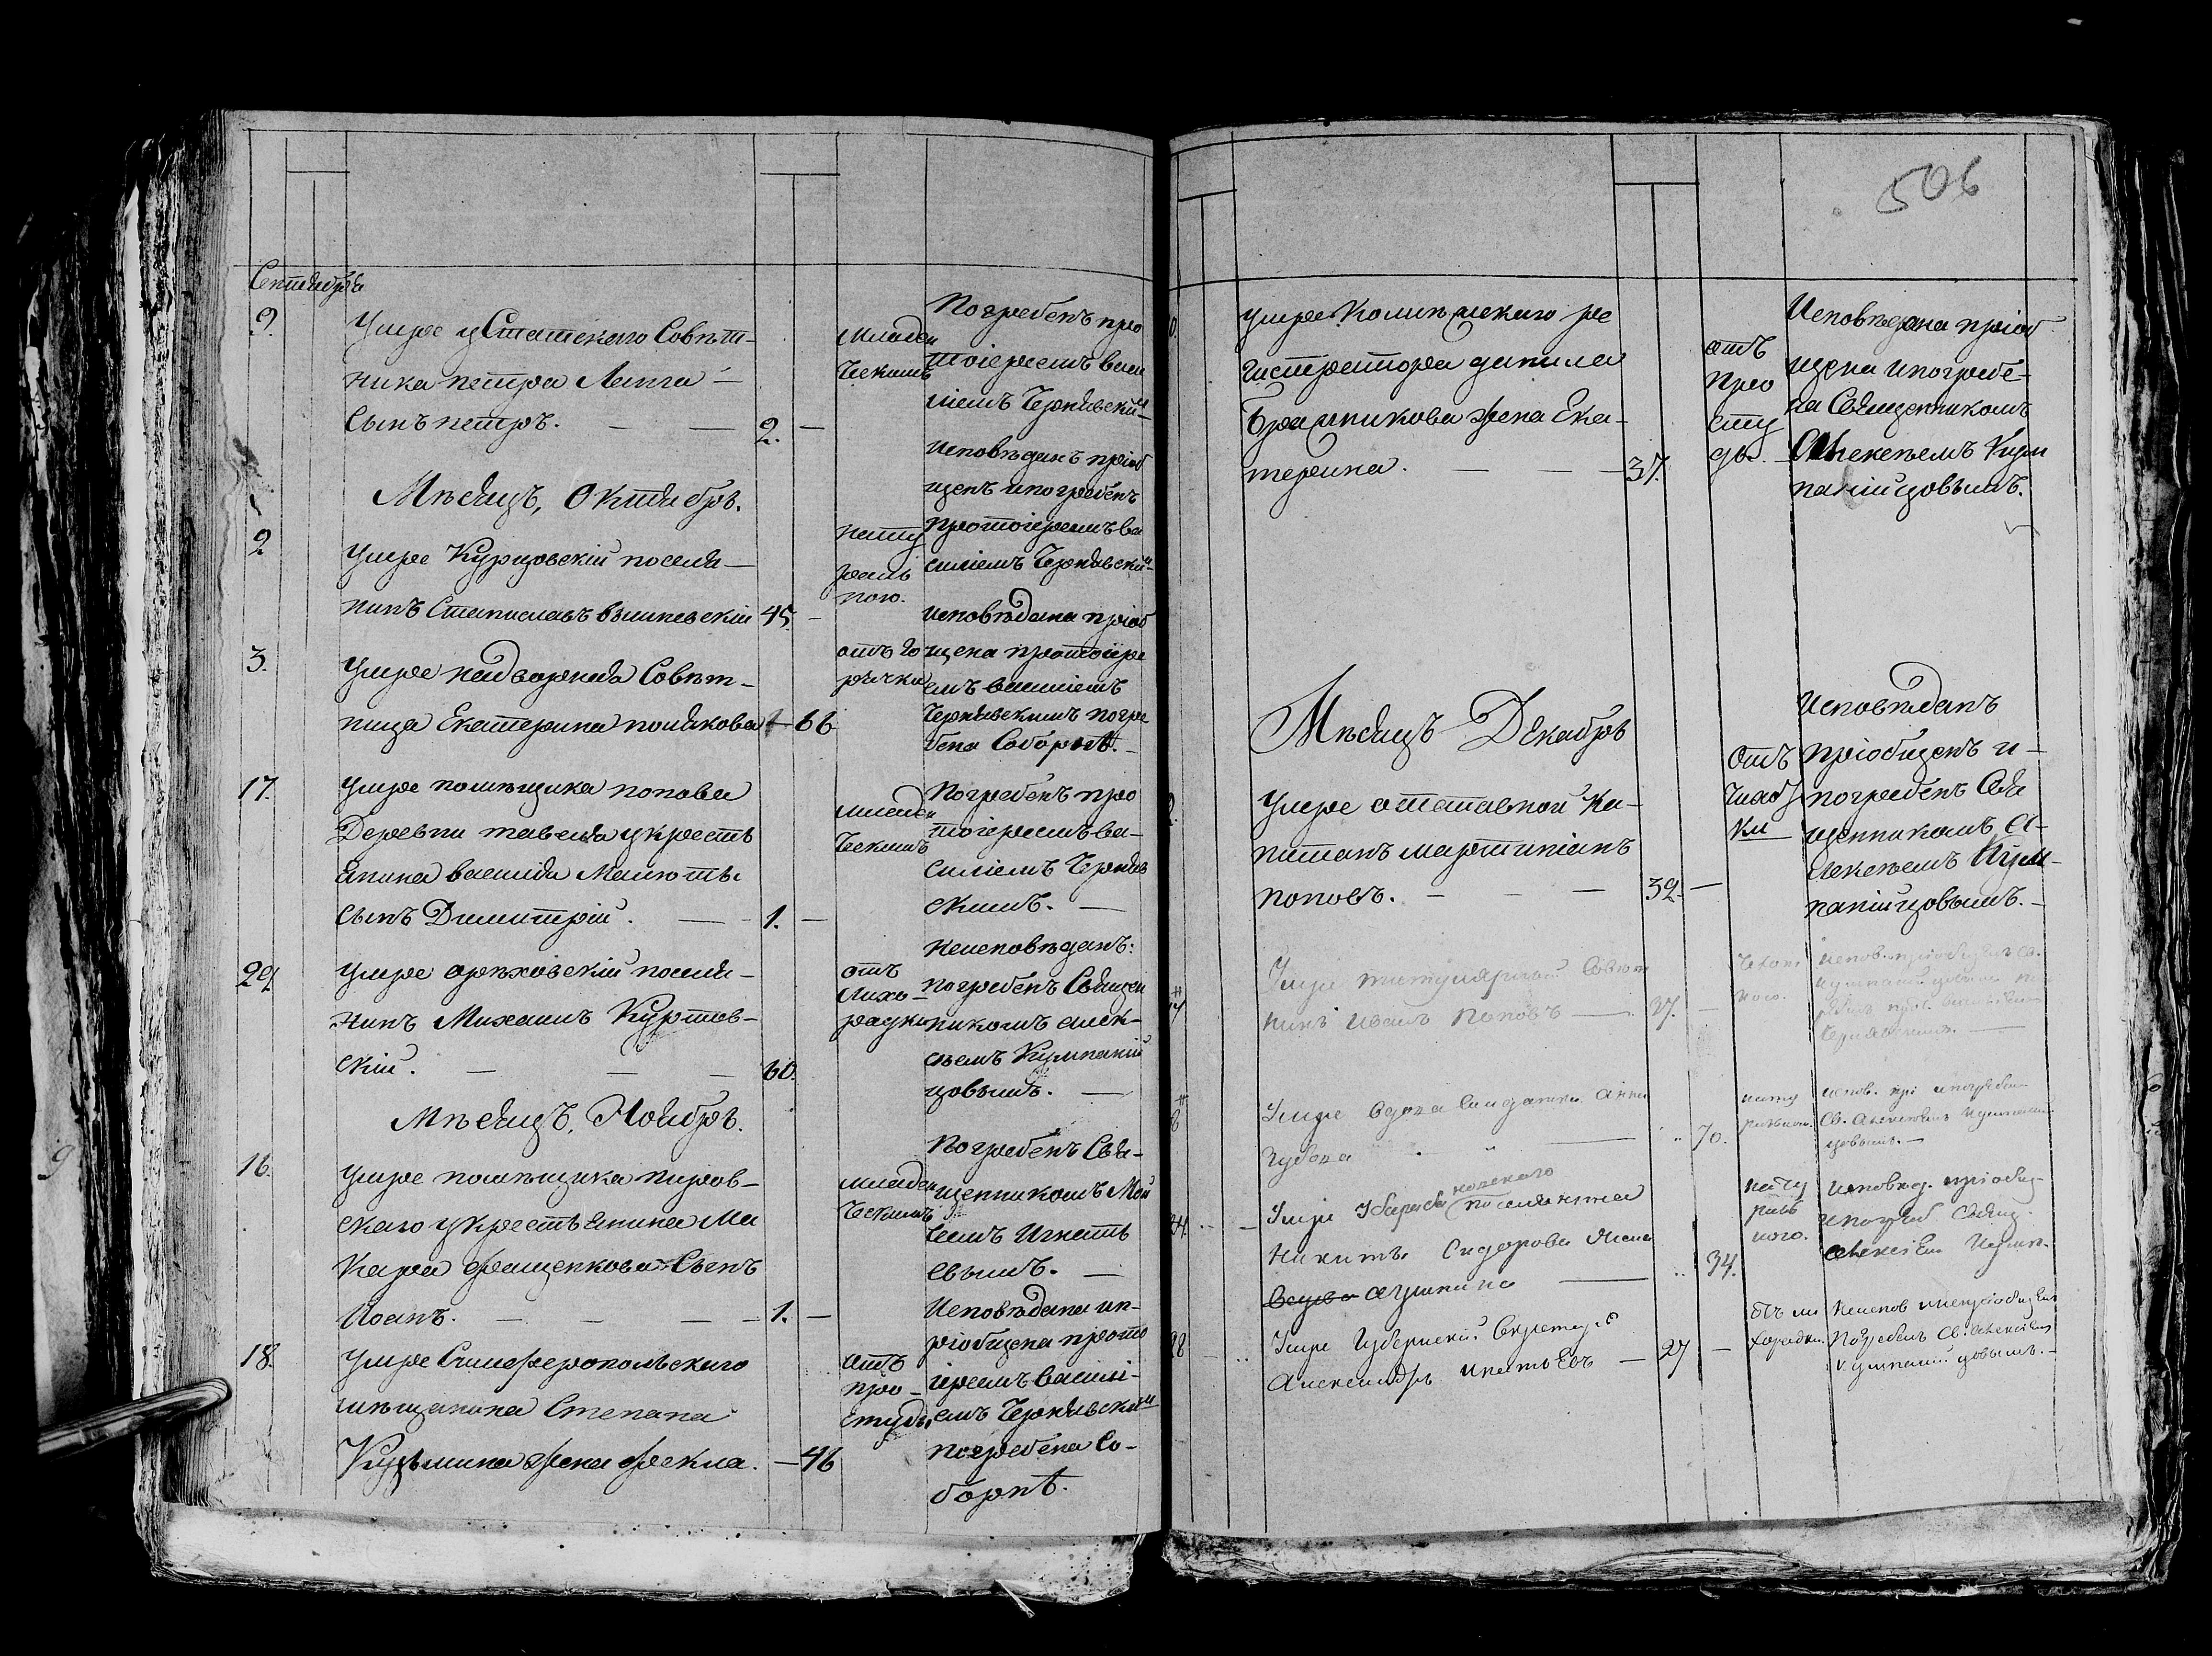 Сентября
9. Умре у Статскаго Совѣт-
ника петра Ланга —
Сынъ петръ. — — 2. —
Младен
ческимъ
Погребенъ про
тоіереемъ васи
ліемъ Чернявский
Мѣсяцъ, Октябрь.
2 Умре Курцовскій поселя-
нинъ Станиславъ вышневскій 45. -
нату
раль
ною.
исповѣданъ пріоб
щенъ и погребенъ
протоіереемъ ва
силіемъ Чернявский
3. Умре надворная Совѣт-
ница Екатерина полякова — 66
отъ го
рячки
исповѣдана пріоб
щена протоіере
емъ василіемъ
Чернявскимъ погре
бена Соборнѣ. —
17. Умре помѣщика попова
Деревни тавеля у крестъ
янина василія
сынъ Димитрій. — 1. —
младен
ческимъ
Погребенъ про
тоіереемъ ва-
силіемъ Черняв
скимъ. —
29. Умре орѣховскій поселя-
нинъ Михаилъ Куртов-
скій. — — — 60.
отъ
Лихо-
радки
неисповѣданъ:
погребенъ Священ
никомъ алек-
сѣемъ Кумпаній
цовымъ. —
Мѣсяцъ, Ноябрь.
16. Умре помѣщика
скаго у крестьянина Ма
кара Фащенкова Сынъ
Иоанъ. — — — 1. —
младен
ческимъ
Погребенъ Свя-
щенникомъ Мои
сеемъ Игнать
евымъ. —
18. Умре Симферопольскаго
мѣщанина Степана
Кузьмина жена Фекла. — 46
отъ
про-
студы
Исповѣдана ип-
ріобщена прото
іереемъ василі-
емъ Чернявским
погребена Со-
борнѣ.
506
умре Колѣжскаго ре
гистратора данила
Брашникова жена Ека-
терина. — — — 37.
отъ
про
сту
ды.
Исповѣдана пріоб
щена и погребе-
на Священникомъ
Алексеемъ Кум
панійцовымъ.
Мѣсяцъ Декабрь
Умре отставной Ка-
питанъ мартиніанъ
поповъ. — — 39. —
Отъ
Чахот
ки
Исповѣданъ
пріобщенъ и —
погребенъ Свя
щенникомъ А-
лексѣемъ Кум-
панійцовымъ. —
Умре титулярной Совѣт
никъ Иванъ Поповъ — 37. —
Умре вдова Солдатка Анна
70.
нату
ральною.
испов. прі и погребена
Св. Алексѣемъ Кумпаній
цовымъ. —
24. Умре
поселянина
Никиты Сидорова жена
34.
нату
раль
ною.
Исповѣд. пріобщ-
и погреб. Свящ.
Алексѣем Кумп.
28 Умре Губернскій Секретарь
Александръ Игнатьевъ — 27 —
отъ ли
хорадки.
Неиспов и непріобщенъ
Погребенъ Св. Алексѣемъ
Кумпаній цовымъ. —